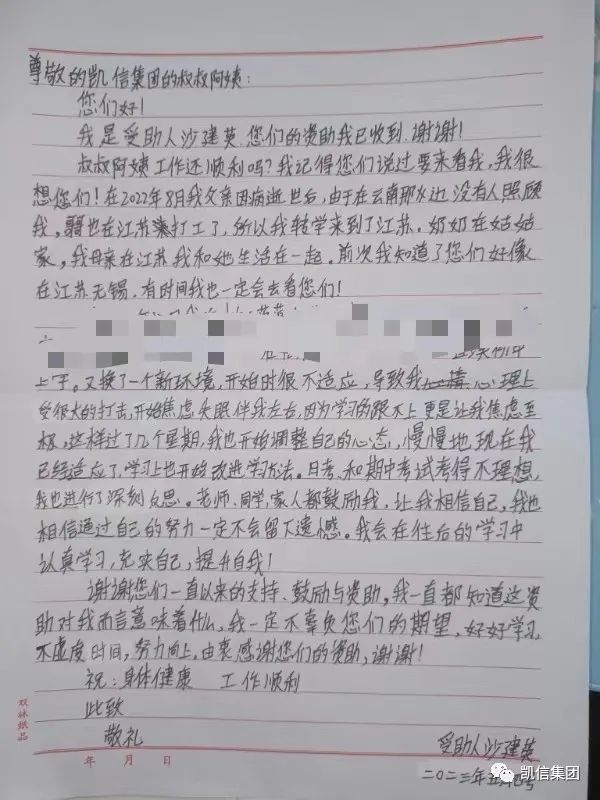 尊敬的凯信集团的叔叔阿姨:
您们好!
我是受助人沙建英.您们的资助我已收到.谢谢!
叔叔阿姨工作还顺利吗?我记得您们说过要来看我,我很
想您们!在2022年8月我父亲因病逝世后,由于在云南那水边没有人照顾
我,哥也在江苏打工了,所以我转学来到了江苏.奶奶在姑姑
家,我母亲在江苏我和她生活在一起.前次我知道了您们好像
在江苏无锡.有时间我也一定会去看您们!
上学。又换了一个新环境,开始时很不适应,导致我心理上
受很大的打击,开始焦虑失眠伴我左右,因为学习的跟不上更是让我焦虑至
极,这样过了几个星期,我也开始调整自己的心态,慢慢地现在我
已经适应了,学习上也开始改进学习方法。月考、和期中考试考得不理想,
我也进行了深刻反思。老师、同学、家人都鼓励我,让我相信自己,我也
相信通过自己的努力一定不会留下遗憾。我会在往后的学习中
认真学习,充实自己,提升自我!
谢谢您们一直以来的支持、鼓励与资助,我一直都知道这资
助对我而言意味着什么,我一定不辜负您们的期望,好好学习,
不虚度时间,努力向上,由衷感谢您们的资助,谢谢!
祝:身体健康 工作顺利
此致
敬礼
双林纸品
年 月 日
受助人沙建英
二〇二三年
凯信集团